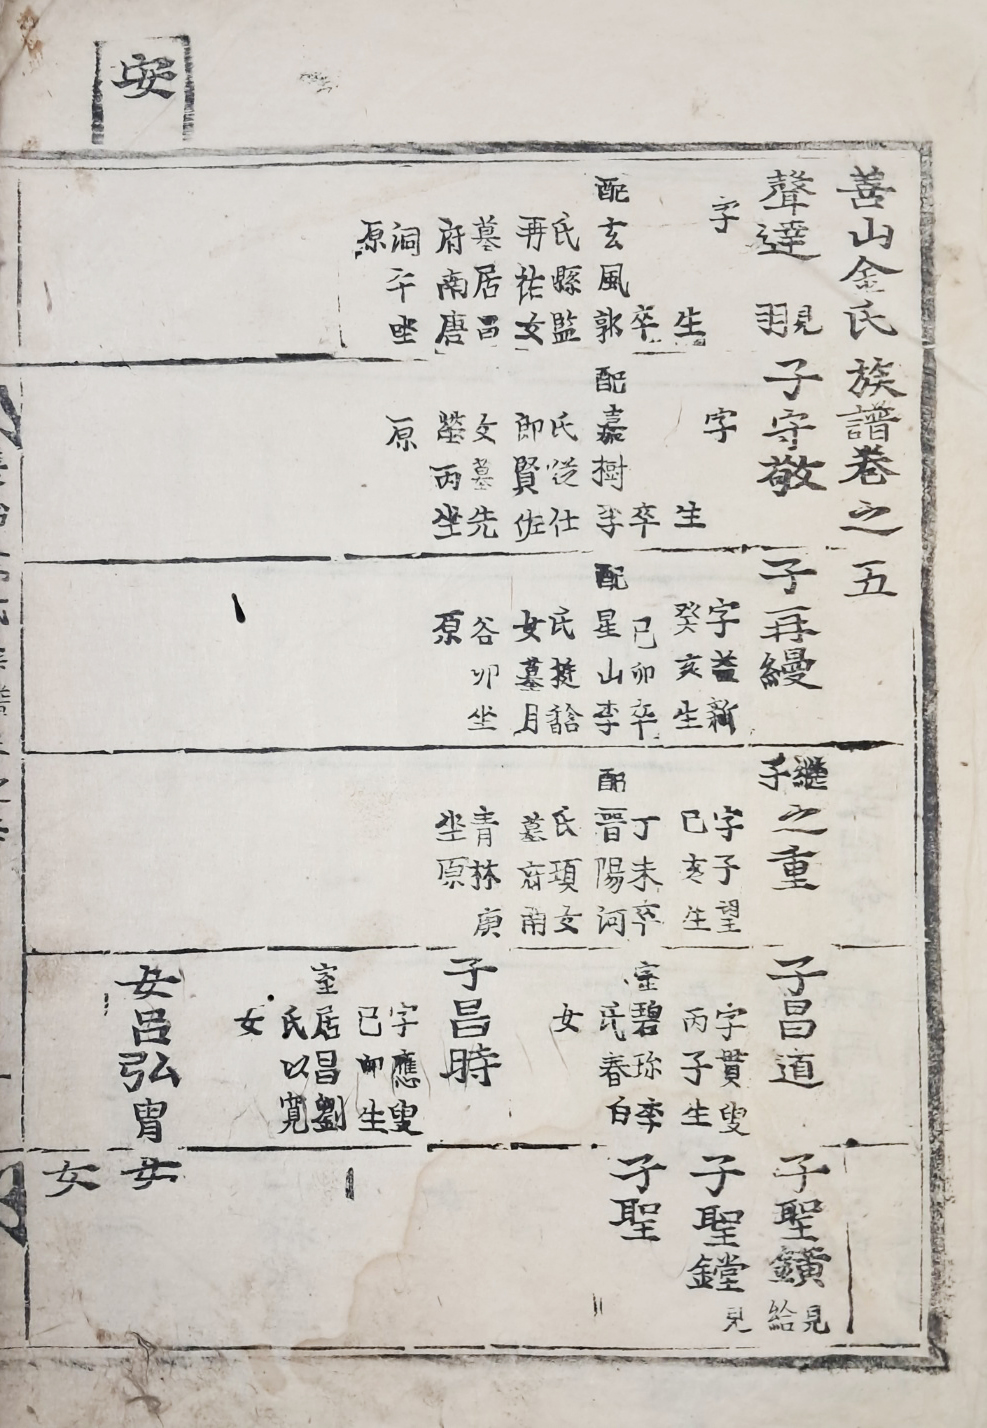 安
善山金氏族譜卷之五
聲達
見羽
字
生
卒
配玄風郭
氏縣監
再祐女
墓居昌
府南唐
洞子坐
原
子守敬
字
生
卒
配嘉樹李
氏從仕
郎賢佐
女墓先
塋丙坐
原
子再縵
字益新
癸亥生
己卯卒
配星山李
氏挺馠
女墓月
谷卯坐
原
繼子之重
字子望
己亥生
丁未卒
配晋陽河
氏瑣女
墓府南
青林庚
坐原
子昌道
字貫叟
丙子生
室碧珍李
氏春白
女
子昌時
字應叟
己卯生
室居昌劉
氏以寬
女
女呂弘胄
子聖鐄
見給
子聖鏜
見
子聖
女
女